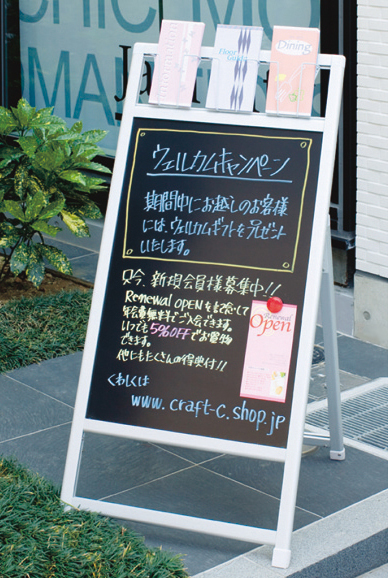 CHIC MO
OMAN
Ja
Information
Floor Guide
Dining
ウェルカムキャンペーン
期間中にお越しのお客様
には、ウェルカムギフトをプレゼント
いたします。
只今、新規会員様募集中!!
Renewal OPENを記念して
年会費無料でご入会できます。
いつでも5%OFFでお買物
できます。
他にもたくさんの得典付!!
Renewal
Open
くわしくは
www.craft-c.shop.jp